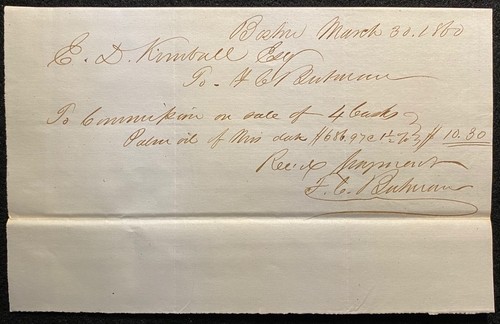 Boston March 30. 1860
E. D. Kimball Esq
To F C Butman
To Commission on sale of 4 Casks
Palm oil of this date $686.97 @ 1½ % $10.30
Rec'd payment
F. C. Butman